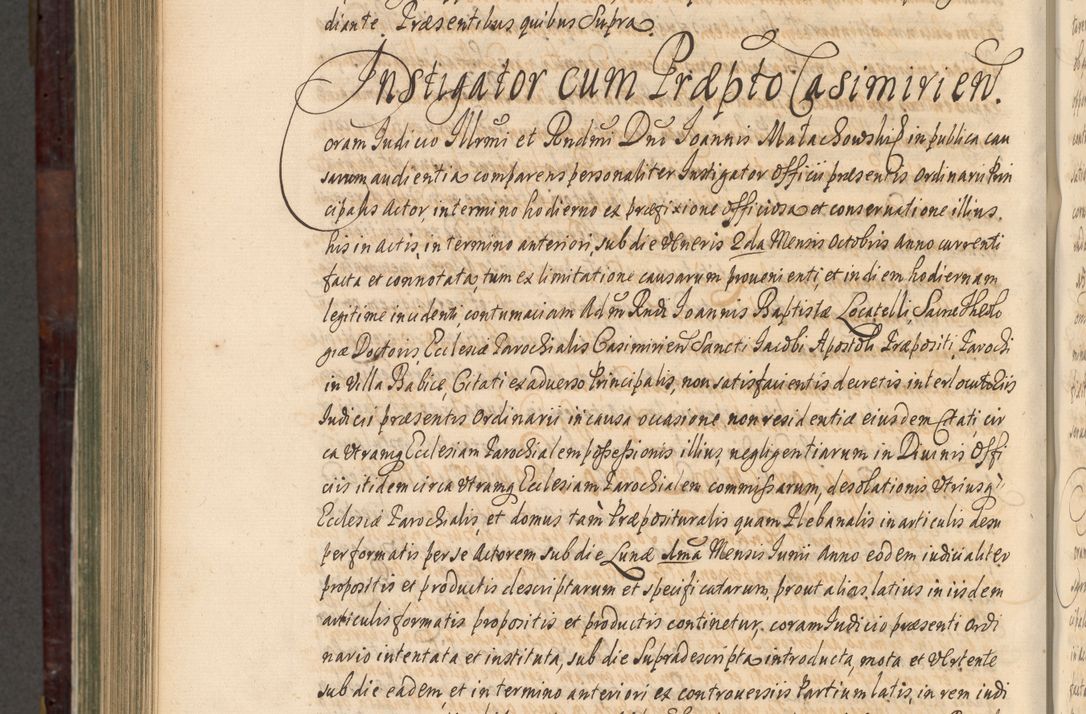 diante. Præsentibus quibus Supra.
Instigator cum Præpto Casimirien.
Coram Judicio Illrmi et Rndmi Dni Joannis Małachowski in publica cau
sarum audientia comparens personaliter Instigator Officii præsentis Ordinarii Prin
cipalis Actor, in termino hodierno ex præfixione officiosa et conservatione illius.
his in actis, in termino anteriori, sub die Veneris 2da Mensis Octobris Anno currenti
facta et connotata, tum ex limitatione causarum provenienti, et in diem hodiernam
legitime incidenti, contumaciam Adm Rndi Joannis Baptistæ Locatelli, Sacræ Theolo
giæ Doctoris, Ecclesiæ Parochialis Casimirien Sancti Jacobi Apostoli Præpositi, Parochi
in Villa Babice, Citati ex adverso Principalis, non satisfacientis decretis interlocutoriis
Judicii præsentis Ordinarii in causa occasione non residentiæ eiusdem Citati, cir
ca utramq Ecclesiam Parochialem possessionis illius, negligentiarum in Divinis Offi
ciis itidem circa utramq Ecclesiam Parochialem commissarum, desolationis utriusq
Ecclesiæ Parochialis, et domus tam Præposituralis quam Plebanalis in articulis desu
per formatis per se Actorem sub die Lunæ 1ma Mensis Junii Anno eodem iudicialiter
propositis et productis descriptarum et specificatarum, prout alias latius in iisdem
articulis formatis propositis et productis continetur, coram Judicio præsenti Ordi
nario intentata et instituta, sub die Supradescripta introducta, mota et vertente
sub die eadem, et in termino anteriori ex controversiis Partium latis, in rem iudi